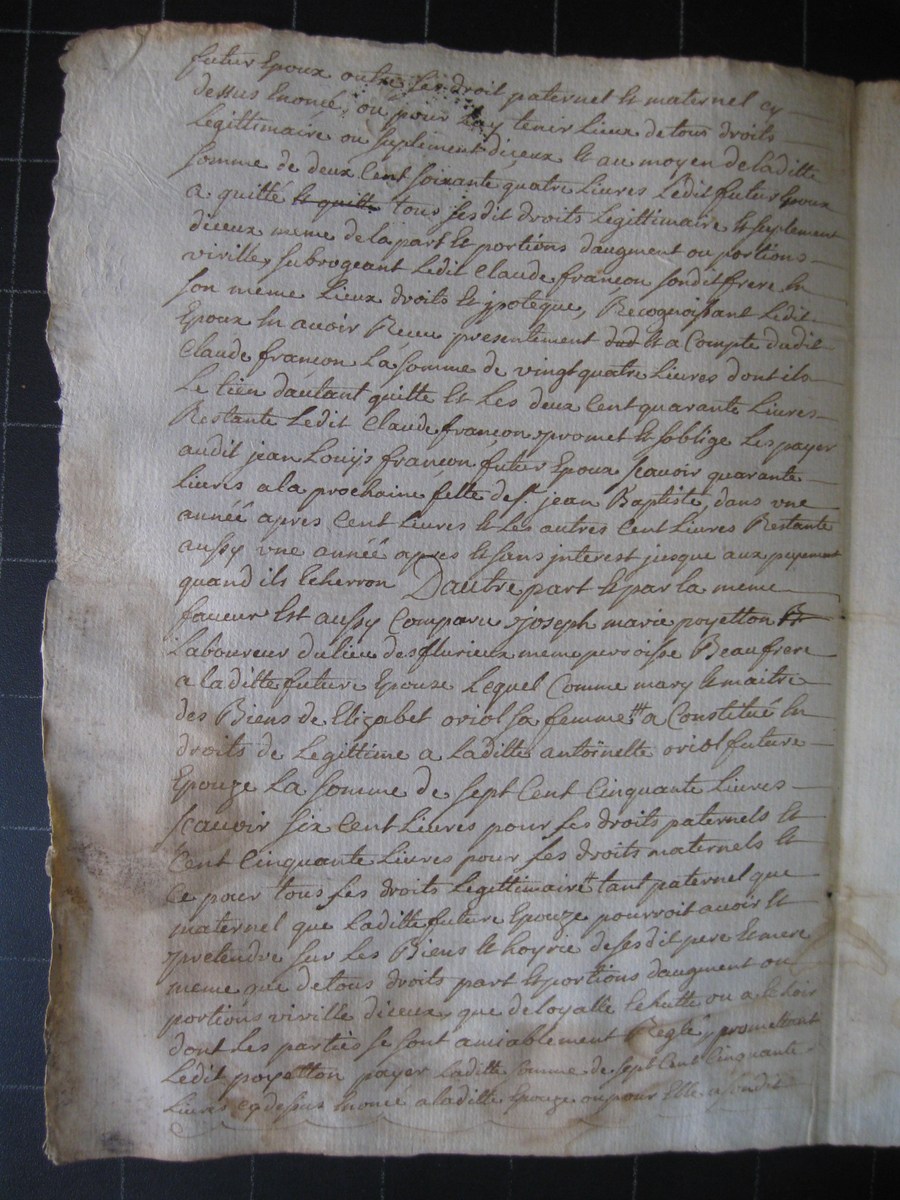 futur Epoux outre les droit paternel et maternel cy
dessus Enoncé, ou pour luy tenir lieux de tous droits
Legittimaire ou suplement diceux et au moyen de laditte
somme de deux Cent soixante quatre Livres Ledit futur Epoux
a quitté et quitte tous ses dit droits Legittimaire et suplement
diceux meme de la part et portions daugment ou portions
virille, subrogeant Ledit Claude françon sondit frere En
son meme Lieux droits et ypoteque, Recognoissant Ledit
Epoux En avoir Receu presentement et a Compte dudit
Claude françon La somme de vingt quatre Livres dont ils
Le tien dautant quitte et Les deux Cent quarante Livres
Restante Ledit Claude françon promet et soblige Les payer
audit jean Louijs françon futur Epoux scavoir quarante
Livres a la prochaine fette de st jean Baptiste, dans vne
année apres Cent Livres et Les autres Cent Livres Restante
aussy vne année apres et sans interest jusque aux payement
quand ils Echerron Dautre part et par la meme
faveur Est aussy Comparu joseph marie poyetton
Laboureur du lieu des flurieux meme peroisse Beaufrere
a laditte future Epouze Lequel Comme mary et maitre
des Biens de Elizabet oriol sa femme a Constitué En
droits de Legittime a laditte antoïnette oriol future
Epouze La somme de sept Cent Cinquante Livres
scavoir six Cent Livres pour ses droits paternels et
Cent Cinquante Livres pour ses droits maternels et
Ce pour tous ses droits Legittimaire tant paternel que
maternel que laditte future Epouze pourroit avoir et
pretendre sur Les Biens et hoyrie de ses dit pere et mere
meme que de tous droits part et portions daugment ou
portions virille diceux, que de loyalle Echutte ou a Echoir
dont Les parties se sont amiablement Reglé, promettant
Ledit poyetton payer laditte somme de sept Cent Cinquante
Livres cy dessus Enoncé a laditte Epouze ou pour Elle a sondit